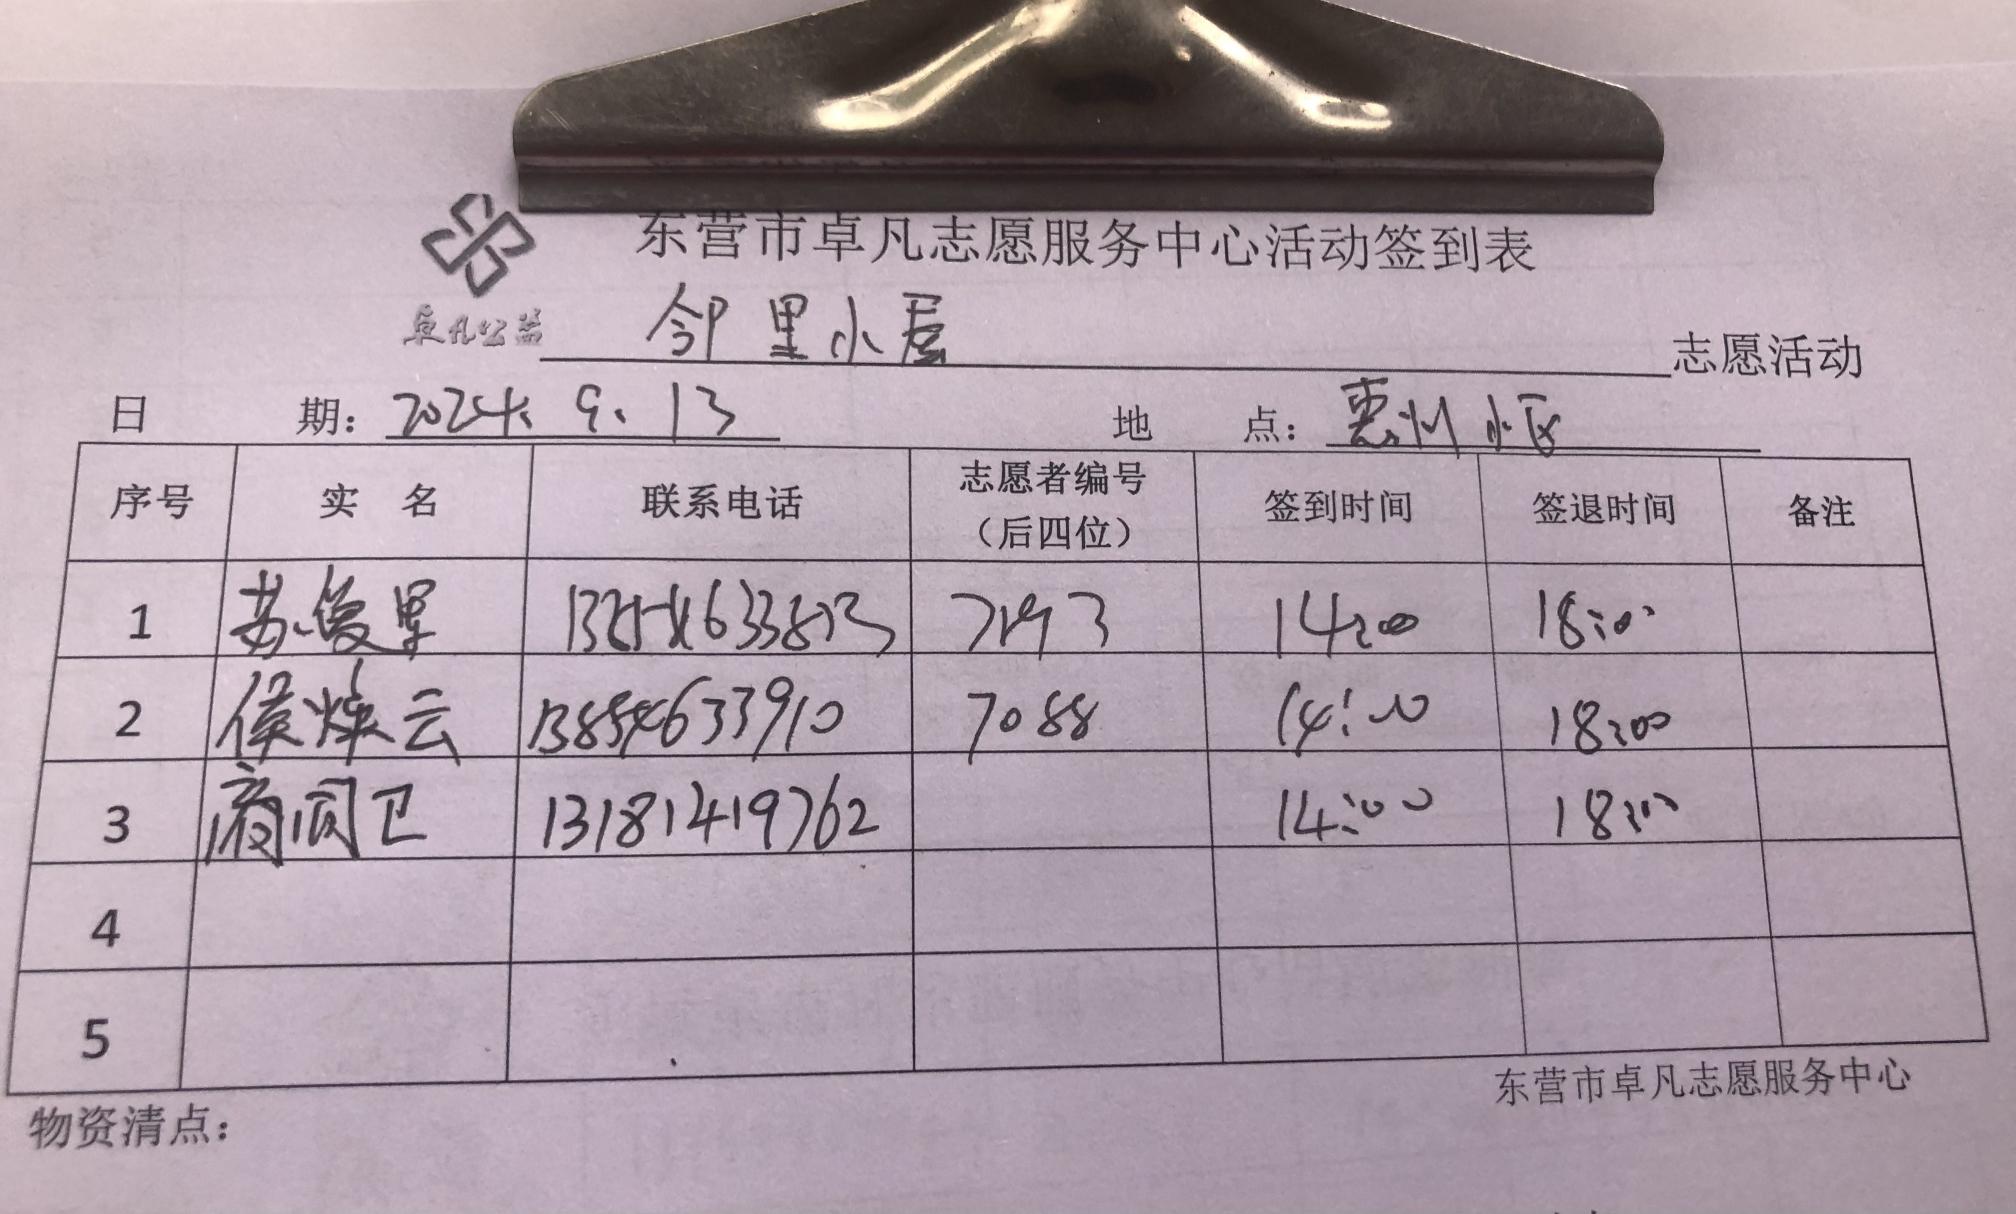 东营市卓凡志愿服务中心活动签到表
卓凡公益
邻里小屋 志愿活动
日 期：2024.9.13 地 点：惠州小区
序号 实 名 联系电话 志愿者编号（后四位） 签到时间 签退时间 备注
1 苏俊 7193 14:00 18:00
2 侯焕云 13854633910 7088 14:00 18:00
3 卫 13181419762 14:00 18:00
4
5
东营市卓凡志愿服务中心
物资清点：